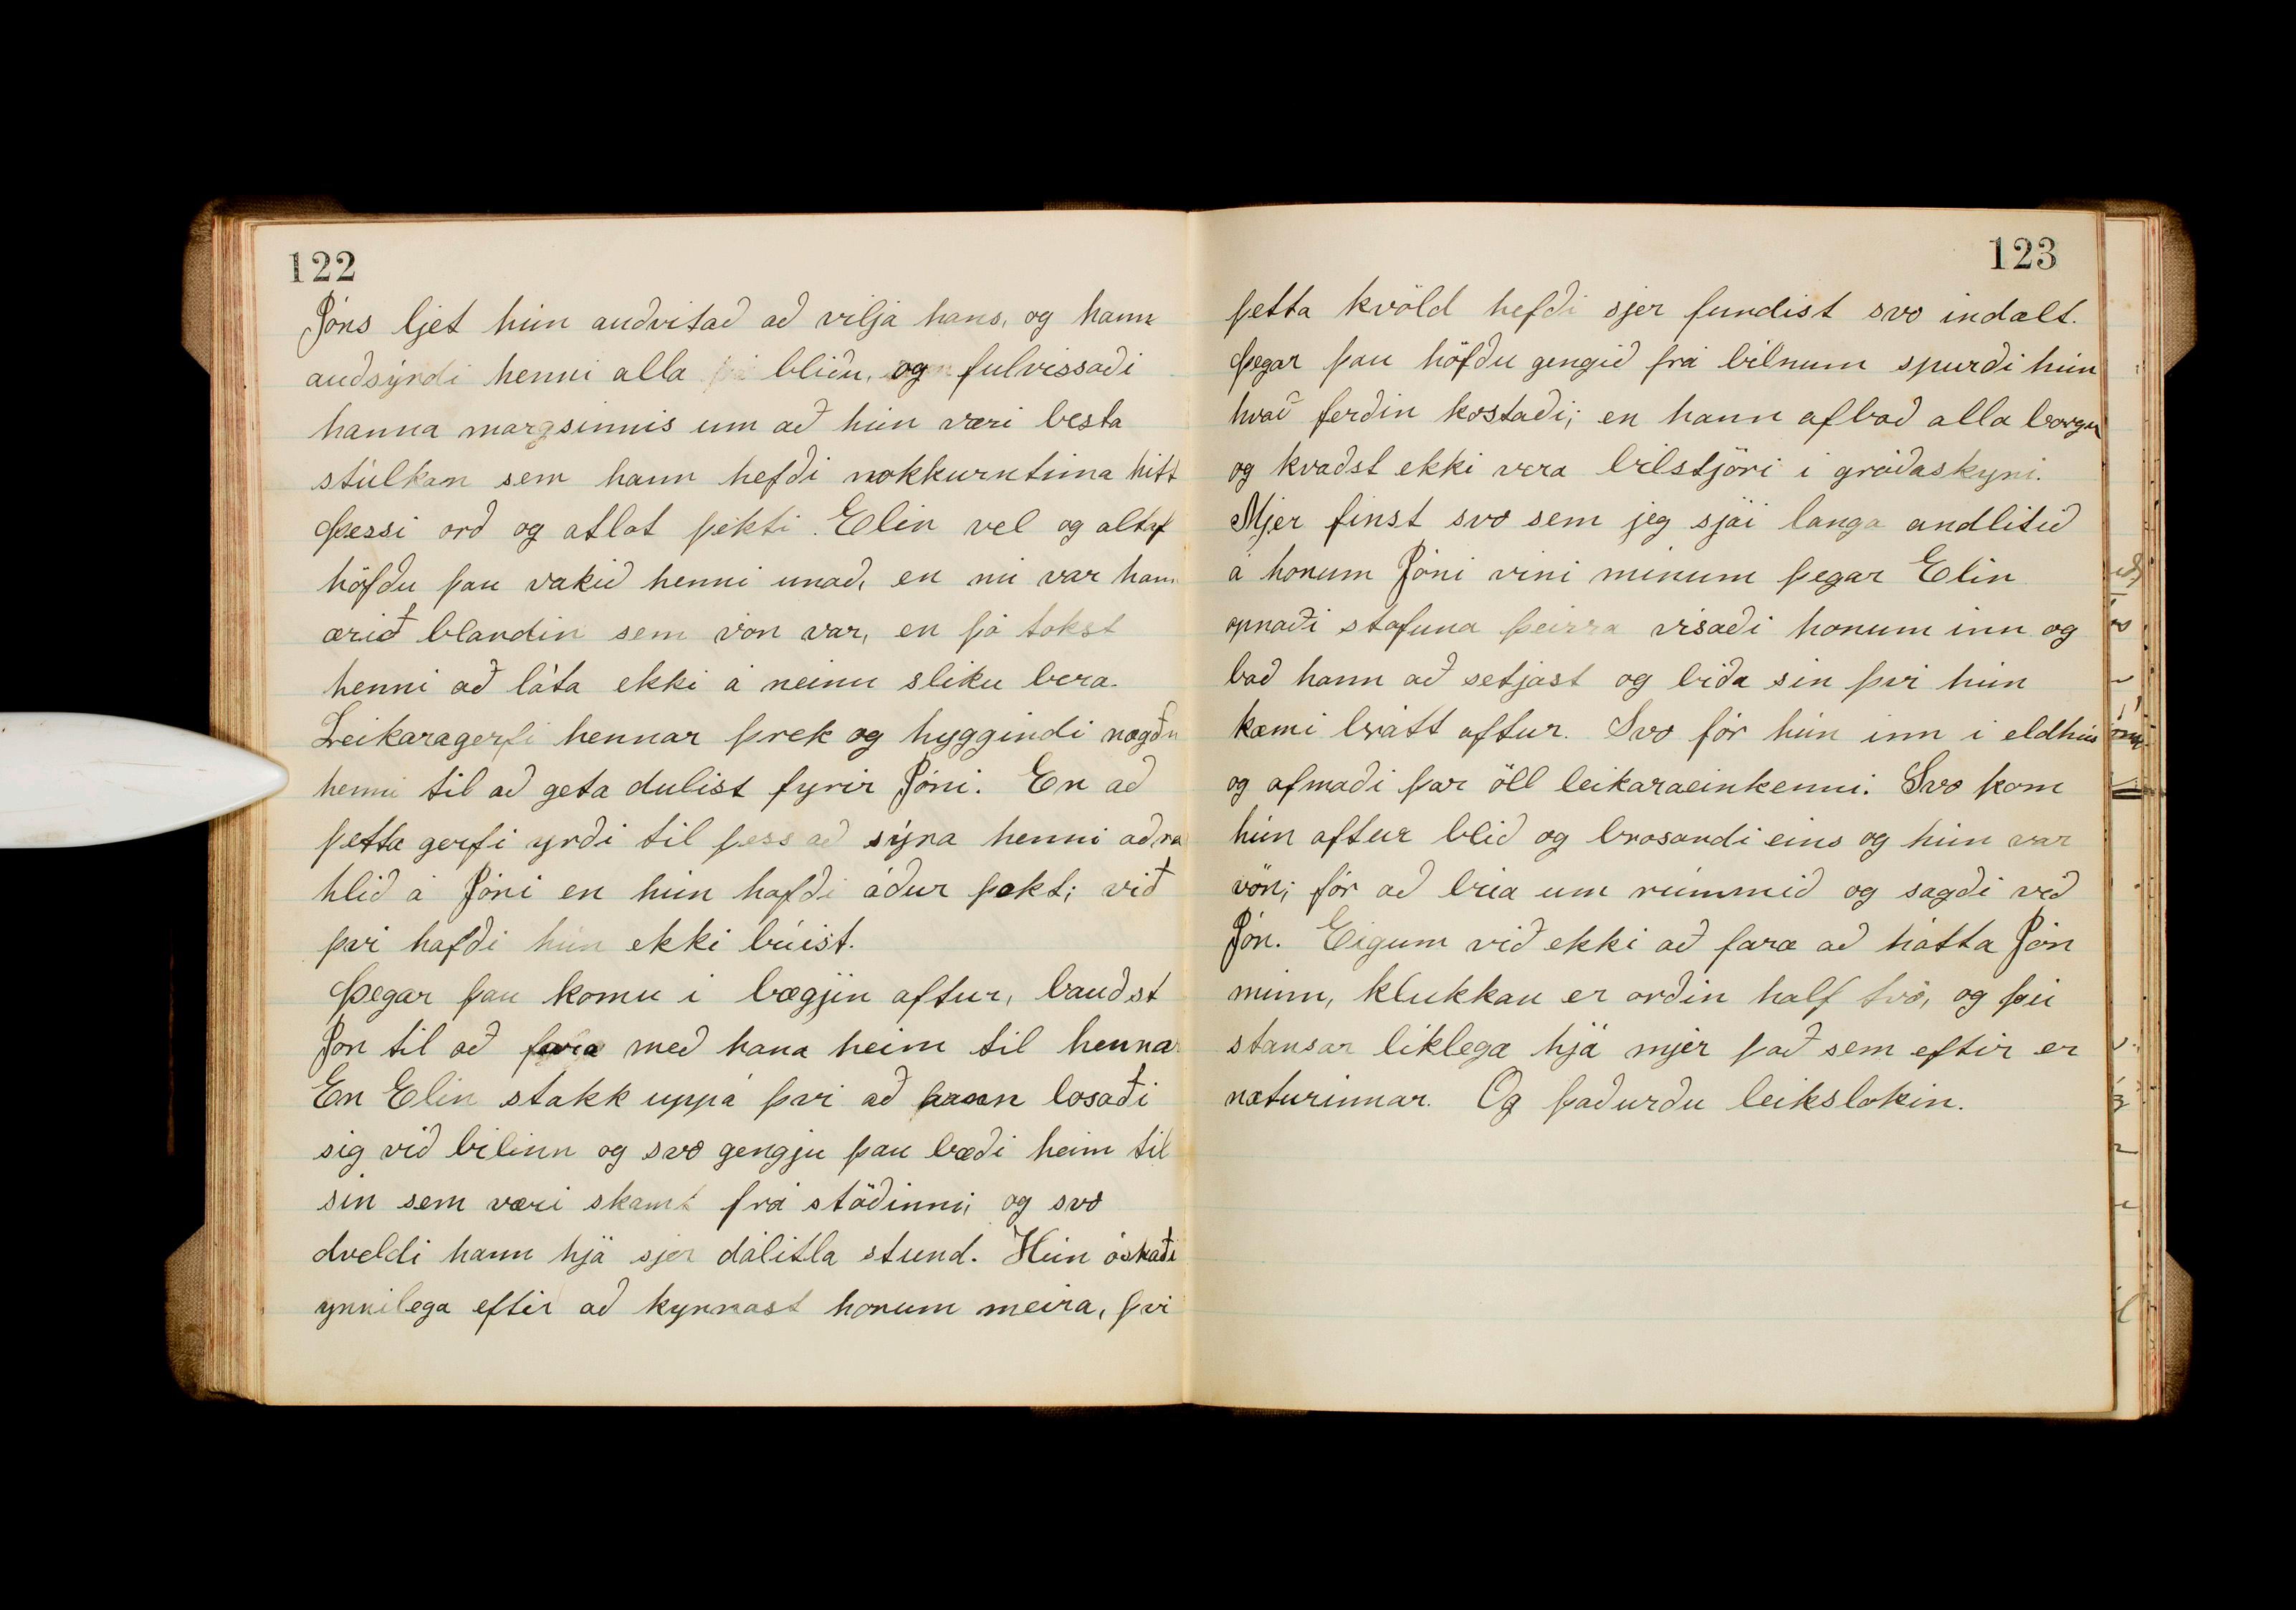 122
Jóns ljet hún auðvitað að vilja hans, og hann
auðsýndi henni alla blíðu, og fulvissaði
hanna margsinnis um að hún væri besta
stúlkan sem hann hefði nokkurntíma hitt
Þessi orð og atlot þekti Elin vel og altaf
höfðu þau vakið henni unað, en nú var hann
ærið blandin sem von var, en þó tokst
henni að láta ekki á neinu sliku bera.
Leikaragerfi hennar þrek og hyggindi nægðu
henni til að geta dulist fyrir Jóni. En að
þetta gerfi yrði til þess að sýna henni aðra
hlið á Jóni en hún hafði áður þekt; við
því hafði hún ekki búist.
Þegar þau komu i bægjin aftur, bauðst
Jón til að fara með hana heim til hennar
En Elin stakk uppá því að hann losaði
sig við bilinn og svo gengju þau bæði heim til
sín sem væri skamt frá stöðinni; og svo
dveldi hann hjá sjer dálitla stund. Hún óskaði
ynnilega eftir að kynnast honum meira, því
123
þetta kvöld hefði sjer fundist svo indælt.
Þegar þau höfðu gengið frá bílnum spurði hún
hvað ferðin kostaði; en hann afbað alla borgun
og kvaðst ekki vera bilstjóri i gróðaskyni.
Mjer finst svo sem jeg sjái langa andlitið
á honum Jóni vini mínum þegar Elin
opnaði stofuna þeirra vísaði honum inn og
bað hann að setjast og bíða sin því hún
kæmi brátt aftur. Svo fór hún inn i eldhús
og afmáði þar öll leikaraeinkenni. Svo kom
hún aftur blíð og brosandi eins og hún var
vön; fór að búa um rúmmið og sagði við
Jón. Eigum við ekki að fara að hátta Jón
minn, klukkan er orðin half tvö, og þú
stansar líklega hjá mjer það sem eftir er
næturinnar. Og þaðurðu leikslokin.